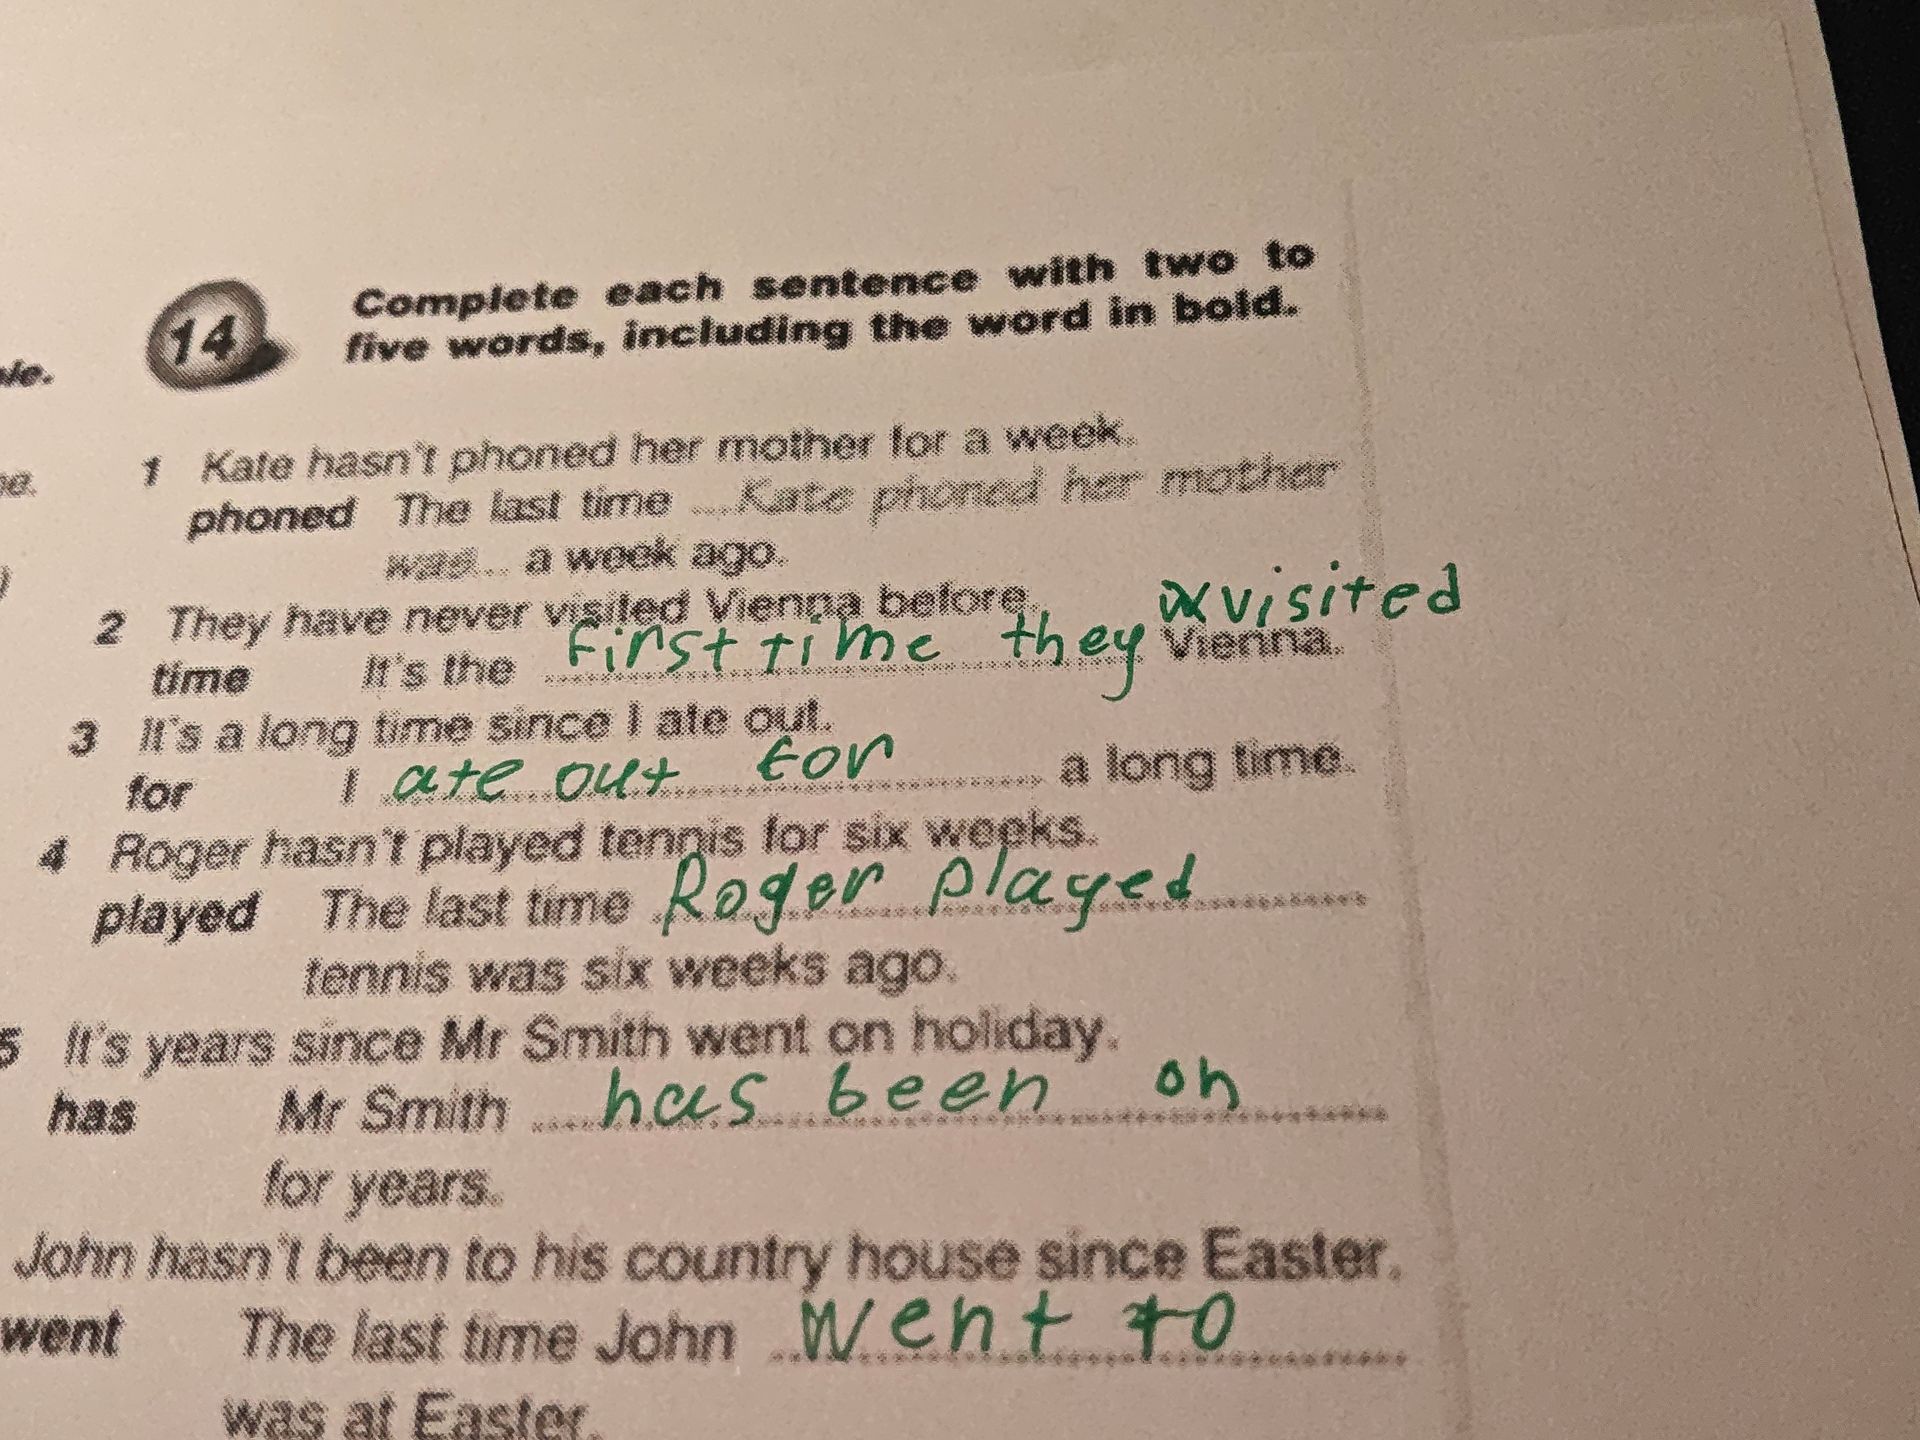 14 Complete each sentence with two to
five words, including the word in bold.
1 Kate hasn't phoned her mother for a week.
phoned The last time ....Kate phoned her mother
was.... a week ago.
2 They have never visited Vienna before.
visited
time It's the first time they Vienna.
3 It's a long time since I ate out.
for I ate out for a long time.
4 Roger hasn't played tennis for six weeks.
played The last time Roger played
tennis was six weeks ago.
5 It's years since Mr Smith went on holiday.
has Mr Smith has been on
for years.
John hasn't been to his country house since Easter.
went The last time John went to
was at Easter.